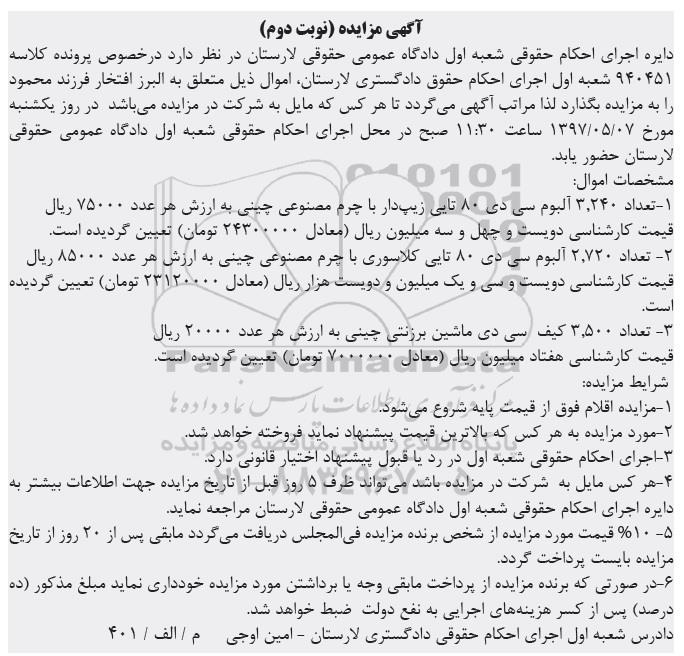 آگهی مزایده (نوبت دوم)
دایره اجرای احکام حقوقی شعبه اول دادگاه عمومی حقوقی لارستان در نظر دارد درخصوص پرونده کلاسه
۹۴۰۴۵۱ شعبه اول اجرای احکام حقوق دادگستری لارستان، اموال ذیل متعلق به البرز افتخار فرزند محمود
را به مزایده بگذارد لذا مراتب آگهی می‌گردد تا هر کس که مایل به شرکت در مزایده می‌باشد در روز یکشنبه
مورخ ۱۳۹۷/۰۵/۰۷ ساعت ۱۱:۳۰ صبح در محل اجرای احکام حقوقی شعبه اول دادگاه عمومی حقوقی
لارستان حضور یابد.
مشخصات اموال:
۱-تعداد ۳,۲۴۰ آلبوم سی دی ۸۰ تایی زیپ‌دار با چرم مصنوعی چینی به ارزش هر عدد ۷۵۰۰۰ ریال
قیمت کارشناسی دویست و چهل و سه میلیون ریال (معادل ۲۴۳۰۰۰۰۰ تومان) تعیین گردیده است.
۲- تعداد ۲,۷۲۰ آلبوم سی دی ۸۰ تایی کلاسوری با چرم مصنوعی چینی به ارزش هر عدد ۸۵۰۰۰ ریال
قیمت کارشناسی دویست و سی و یک میلیون و دویست هزار ریال (معادل ۲۳۱۲۰۰۰۰ تومان) تعیین گردیده
است.
۳- تعداد ۳,۵۰۰ کیف سی دی ماشین برزنتی چینی به ارزش هر عدد ۲۰۰۰۰ ریال
قیمت کارشناسی هفتاد میلیون ریال (معادل ۷۰۰۰۰۰۰ تومان) تعیین گردیده است.
ParsNamadData
شرایط مزایده:
مرکز فرآوری اطلاعات پارس نماد داده ها
۱-مزایده اقلام فوق از قیمت پایه شروع می‌شود.
۲-مورد مزایده به هر کس که بالاترین قیمت پیشنهاد نماید فروخته خواهد شد.
پایگاه اطلاع رسانی مناقصه و مزایده
۳-اجرای احکام حقوقی شعبه اول در رد یا قبول پیشنهاد اختیار قانونی دارد.
۰۲۱-۸۸۳۴۹۶۷۰-۵
۴-هر کس مایل به شرکت در مزایده باشد می‌تواند ظرف ۵ روز قبل از تاریخ مزایده جهت اطلاعات بیشتر به
دایره اجرای احکام حقوقی شعبه اول دادگاه عمومی حقوقی لارستان مراجعه نماید.
۵- ۱۰% قیمت مورد مزایده از شخص برنده مزایده فی‌المجلس دریافت می‌گردد مابقی پس از ۲۰ روز از تاریخ
مزایده بایست پرداخت گردد.
۶-در صورتی که برنده مزایده از پرداخت مابقی وجه یا برداشتن مورد مزایده خودداری نماید مبلغ مذکور (ده
درصد) پس از کسر هزینه‌های اجرایی به نفع دولت ضبط خواهد شد.
دادرس شعبه اول اجرای احکام حقوقی دادگستری لارستان - امین اوجی م / الف / ۴۰۱